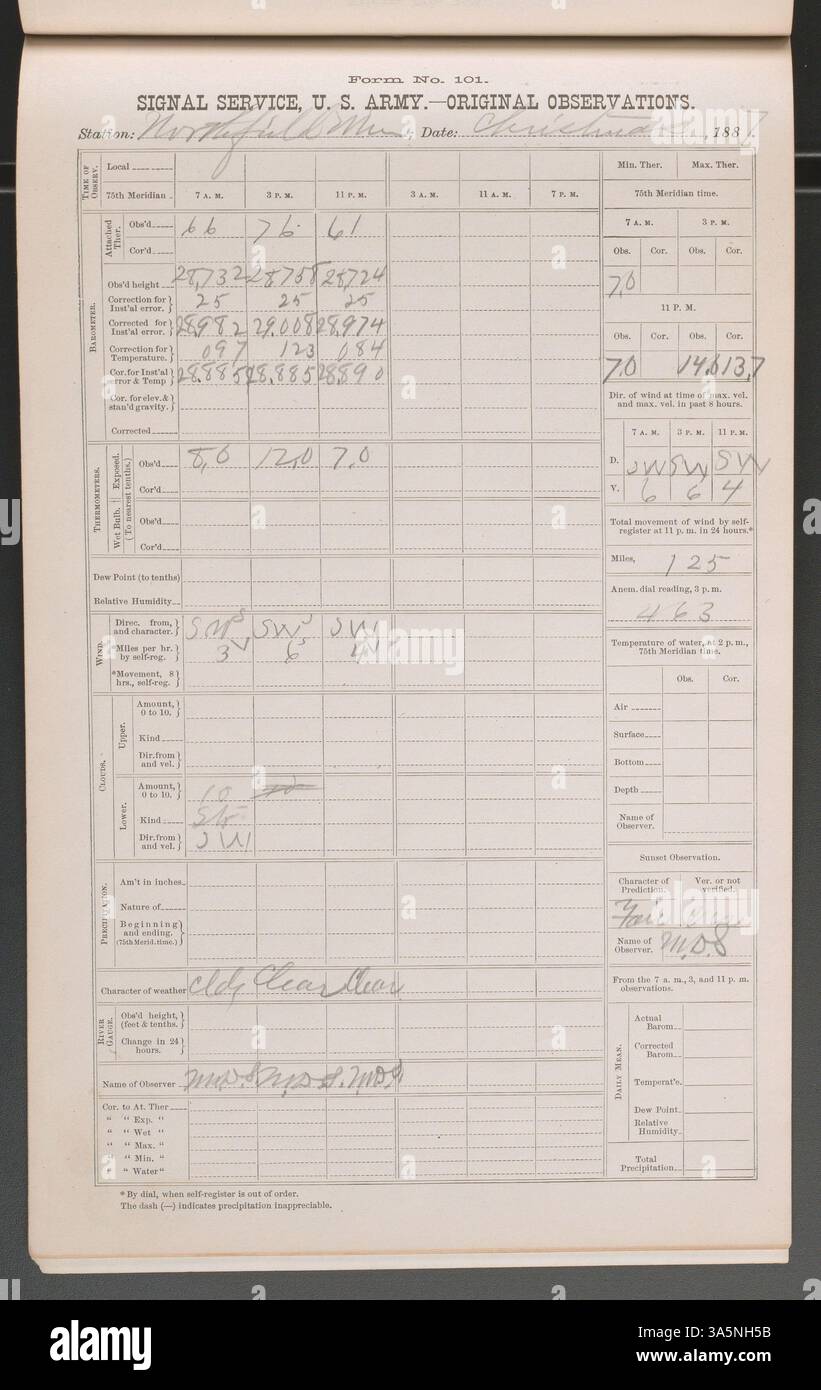 Form No. 101.
SIGNAL SERVICE, U. S. ARMY.—ORIGINAL OBSERVATIONS.
Station: Northfield Minn; Date: Christmas, 1887.
TIME OF OBSERV.
Local
75th Meridian 7 A. M. 3 P. M. 11 P. M. 3 A. M. 11 A. M. 7 P. M.
BAROMETER.
Attached Ther.
Obs'd 66 76 61
Cor'd
Obs'd height 28,732 28758 28,724
Correction for Inst'al error. 25 25 25
Corrected for Inst'al error. 28.982 29.008 28.974
Correction for Temperature. 097 123 084
Cor. for Inst'al error & Temp 28.885 28.885 28.890
Cor. for elev. & stan'd gravity.
Corrected
THERMOMETERS.
(To nearest tenths.)
Exposed.
Obs'd 8,0 12,0 7,0
Cor'd
Wet Bulb.
Obs'd
Cor'd
Dew Point (to tenths)
Relative Humidity
WIND.
Direc. from, and character. SW SW SW
*Miles per hr. by self-reg. 3 6 4
*Movement, 8 hrs., self-reg.
CLOUDS.
Upper.
Amount, 0 to 10.
Kind
Dir. from and vel.
Lower.
Amount, 0 to 10. 10 10
Kind St
Dir. from and vel. SW
PRECIPITATION.
Am't in inches
Nature of
Beginning and ending. (75th Merid. time.)
Character of weather Cldy Clear Clear
RIVER GAUGE.
Obs'd height, (feet & tenths.
Change in 24 hours.
Name of Observer M.D.S. M.D.S. M.D.S.
Cor. to At. Ther
" " Exp. "
" " Wet "
" " Max. "
" " Min. "
" " Water"
*By dial, when self-register is out of order.
The dash (—) indicates precipitation inappreciable.
Min. Ther. Max. Ther.
75th Meridian time.
7 A. M. 3 P. M.
Obs. Cor. Obs. Cor.
7,0
11 P. M.
Obs. Cor. Obs. Cor.
7.0 14.6 13,7
Dir. of wind at time of max. vel. and max. vel. in past 8 hours.
7 A. M. 3 P. M. 11 P. M.
D. SW SW SW
V. 6 6 4
Total movement of wind by self-register at 11 p. m. in 24 hours.*
Miles, 125
Anem. dial reading, 3 p. m.
463
Temperature of water, at 2 p. m., 75th Meridian time.
Obs. Cor.
Air
Surface
Bottom
Depth
Name of Observer.
Sunset Observation.
Character of Prediction. Ver. or not verified.
Fair
Name of Observer. M.D.S
From the 7 a. m., 3, and 11 p. m. observations.
DAILY MEAN.
Actual Barom
Corrected Barom
Temperat'e.
Dew Point
Relative Humidity
Total Precipitation
alamy
Image ID: 3A5NH5B
www.alamy.com